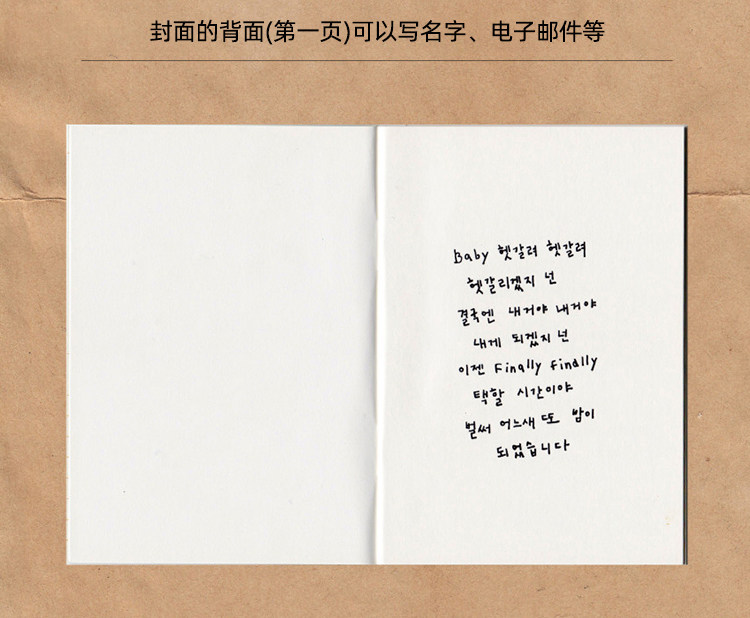 封面的背面(第一页)可以写名字、电子邮件等
Baby 헷갈려 헷갈려
헷갈리겠지 넌
결국엔 내거야 내거야
내게 되겠지 넌
이젠 Finally Finally
택할 시간이야
벌써 어느새 또 밤이
되었습니다